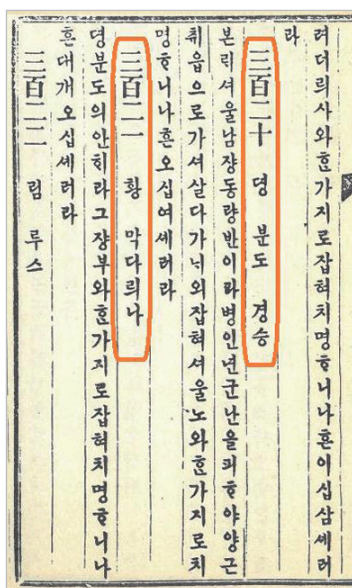 려더릐사와ᄒᆞᆫ가지로잡혀치명ᄒᆞ니나흔이십삼셰러
라
三百二十 뎡 분도 경승
본ᄃᆡ셔울남쟝동량반이라병인년군난을피ᄒᆞ야양근
읍으로가셔살다가 잡혀셔울노와ᄒᆞᆫ가지로치
명ᄒᆞ니나흔오십여셰러라
三百二一 황 막다릐나
뎡분도의안ᄒᆡ라그쟝부와ᄒᆞᆫ가지로잡혀치명ᄒᆞ니나
흔대개오십셰러라
三百二二 림 루스